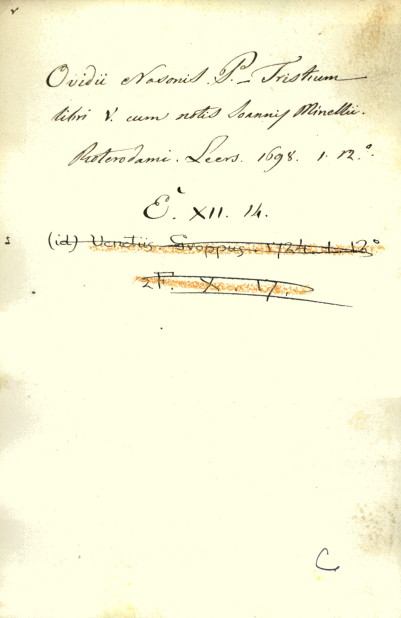 Ovidii Nasonis. P. - Tristium
libri V. cum notis Ioannis Minellii.
Roterodami. Leers. 1698. 1. 12.º.
E. XII. 14.
(id) Venetiis Groppus 1724. 1. 12º
2F. X. 17.
C